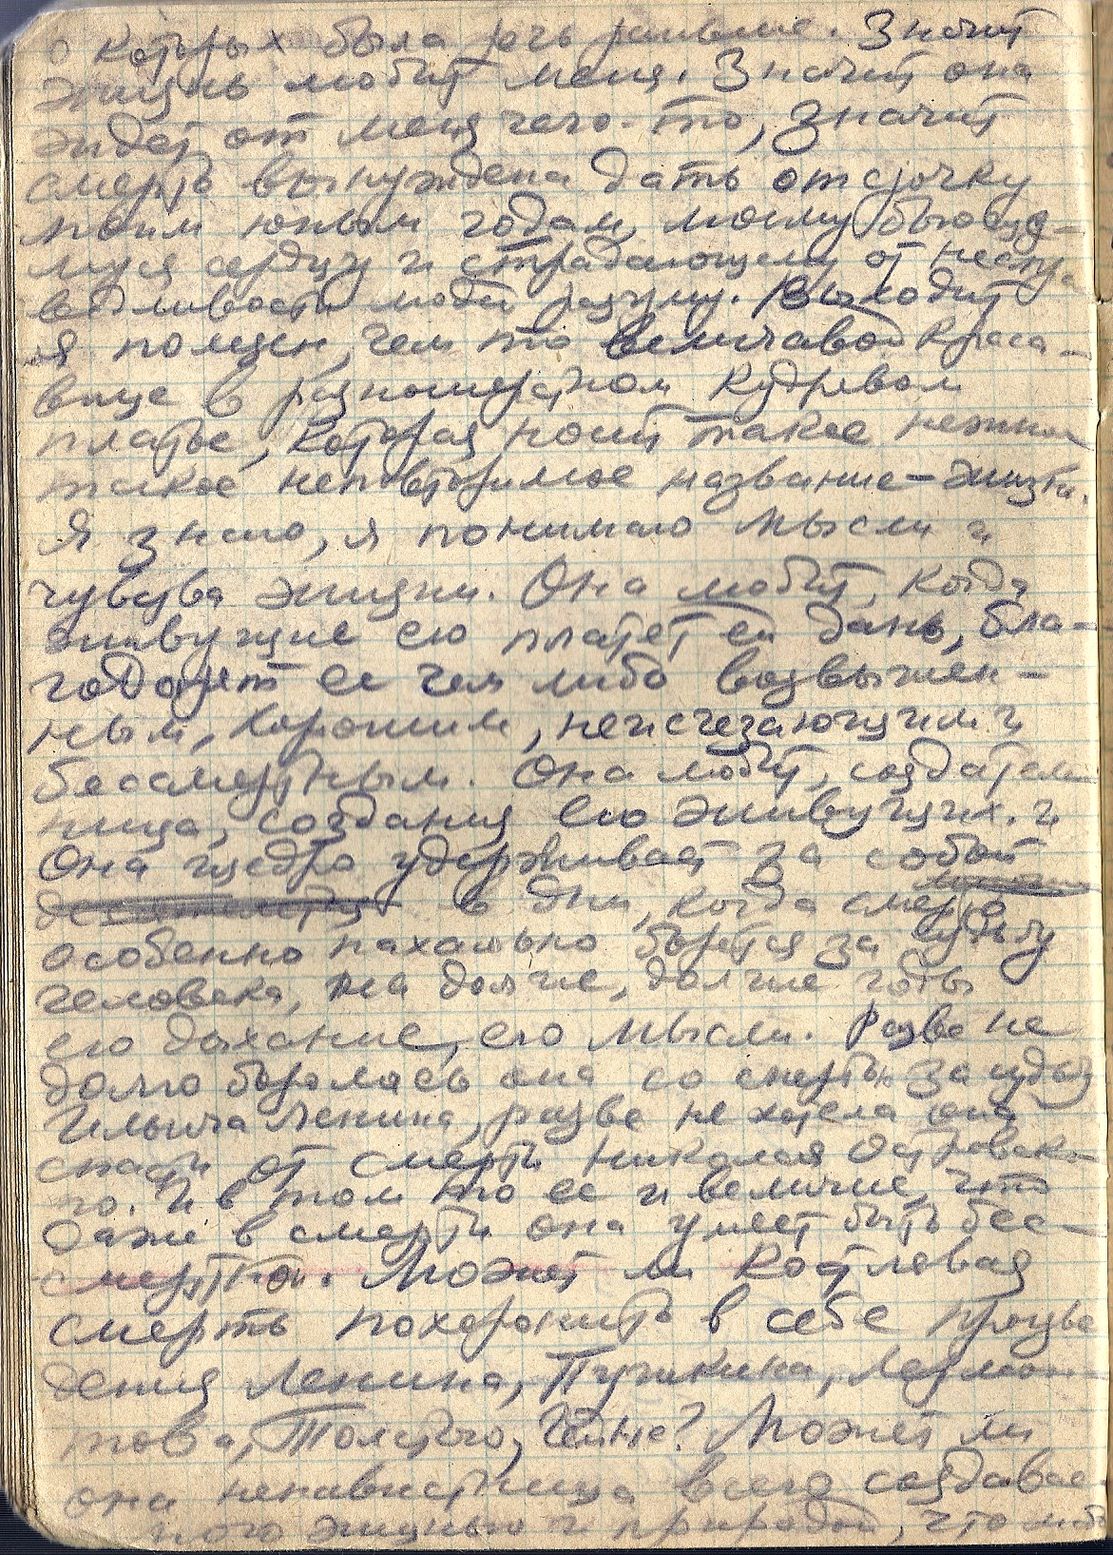 о которых была речь раньше. Значит
жизнь любит меня. Значит она
ждет от меня чего-то, значит
смерть вынуждена дать отсрочку
моим юным годам, моему бьюще-
муся сердцу и страдающему от неспра
ведливости людей разуму. Выходит
я полезен, чем то величавой краса-
вице в разношерстном кудрявом
платье, которая носит такое нежное
такое неповторимое название - жизнь.
Я знаю, я понимаю мысли и
чувства жизни. Она любит, когда
живущие ею платят ей дань, бла-
годарят ее чем либо возвышен-
ным, хорошим, неисчезающим и
бессмертным. Она любит, создатель
ница, создания ею живущих. и
Она щедро удерживает за собой
в дни, когда смерть
особенно нахально борется за судьбу
человека, на долгие, долгие годы
его дыхание, его мысли. Разве не
долго боролась она со смертью за судьбу
Ильича Ленина, разве не хотела она
спасти от смерти Николая Островско-
го. И в том то ее и величие, что
даже в смерти она умеет быть бес-
смертной. Может ли костлявая
смерть похоронить в себе произве
дения Ленина, Пушкина, Лермон-
това, Толстого, Гейне? Может ли
она ненавистница всего создавае
мого жизнью и природой, что либо